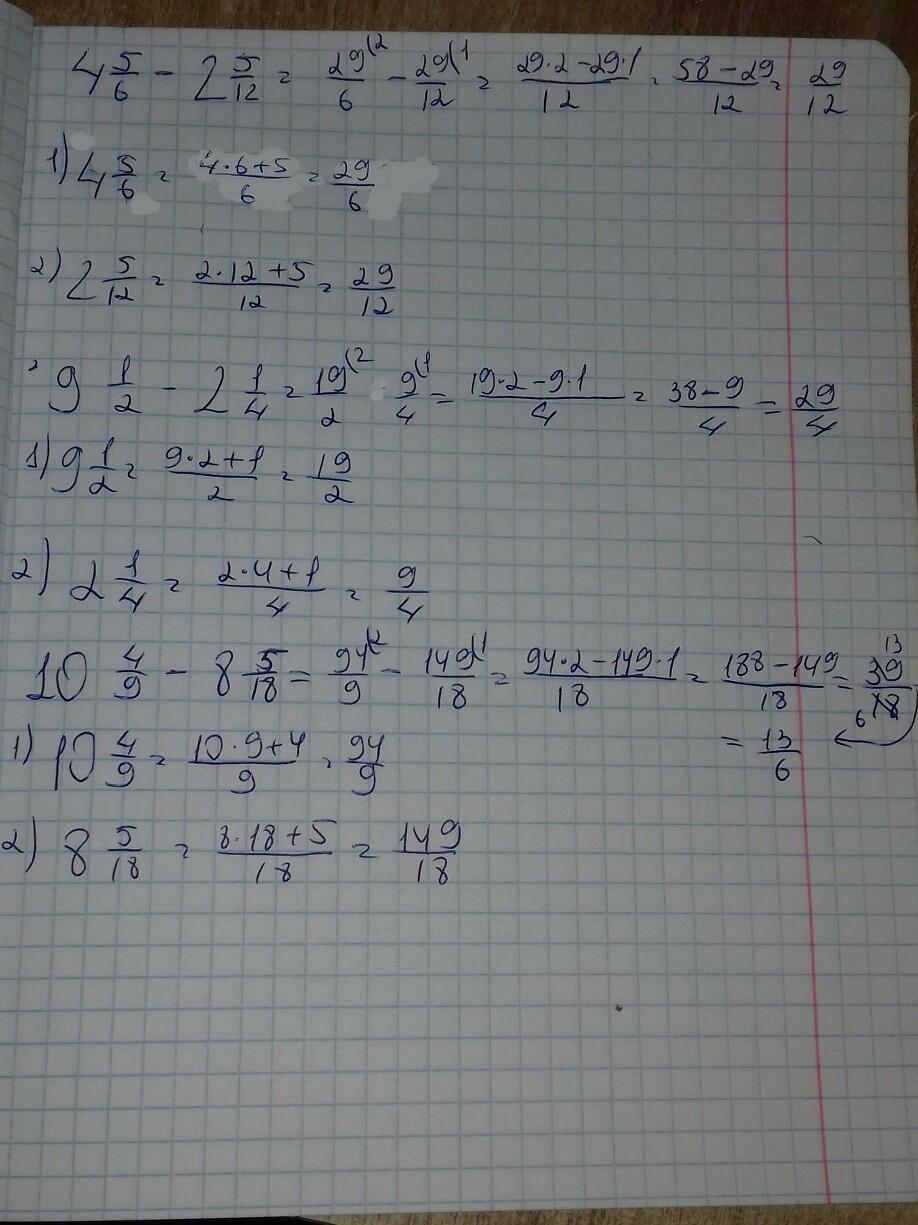 4 5/6 - 2 5/12 = 29(2/6 - 29(1/12 = 29·2-29·1/12 = 58-29/12 = 29/12
1) 4 5/6 = 4·6+5/6 = 29/6
2) 2 5/12 = 2·12+5/12 = 29/12
9 1/2 - 2 1/4 = 19(2/2 9(1/4 = 19·2-9·1/4 = 38-9/4 = 29/4
1) 9 1/2 = 9·2+1/2 = 19/2
2) 2 1/4 = 2·4+1/4 = 9/4
10 4/9 - 8 5/18 = 94(2/9 - 149(1/18 = 94·2-149·1/18 = 188-149/18 = 39 13/18 6
= 13/6
1) 10 4/9 = 10·9+4/9 = 94/9
2) 8 5/18 = 8·18+5/18 = 149/18